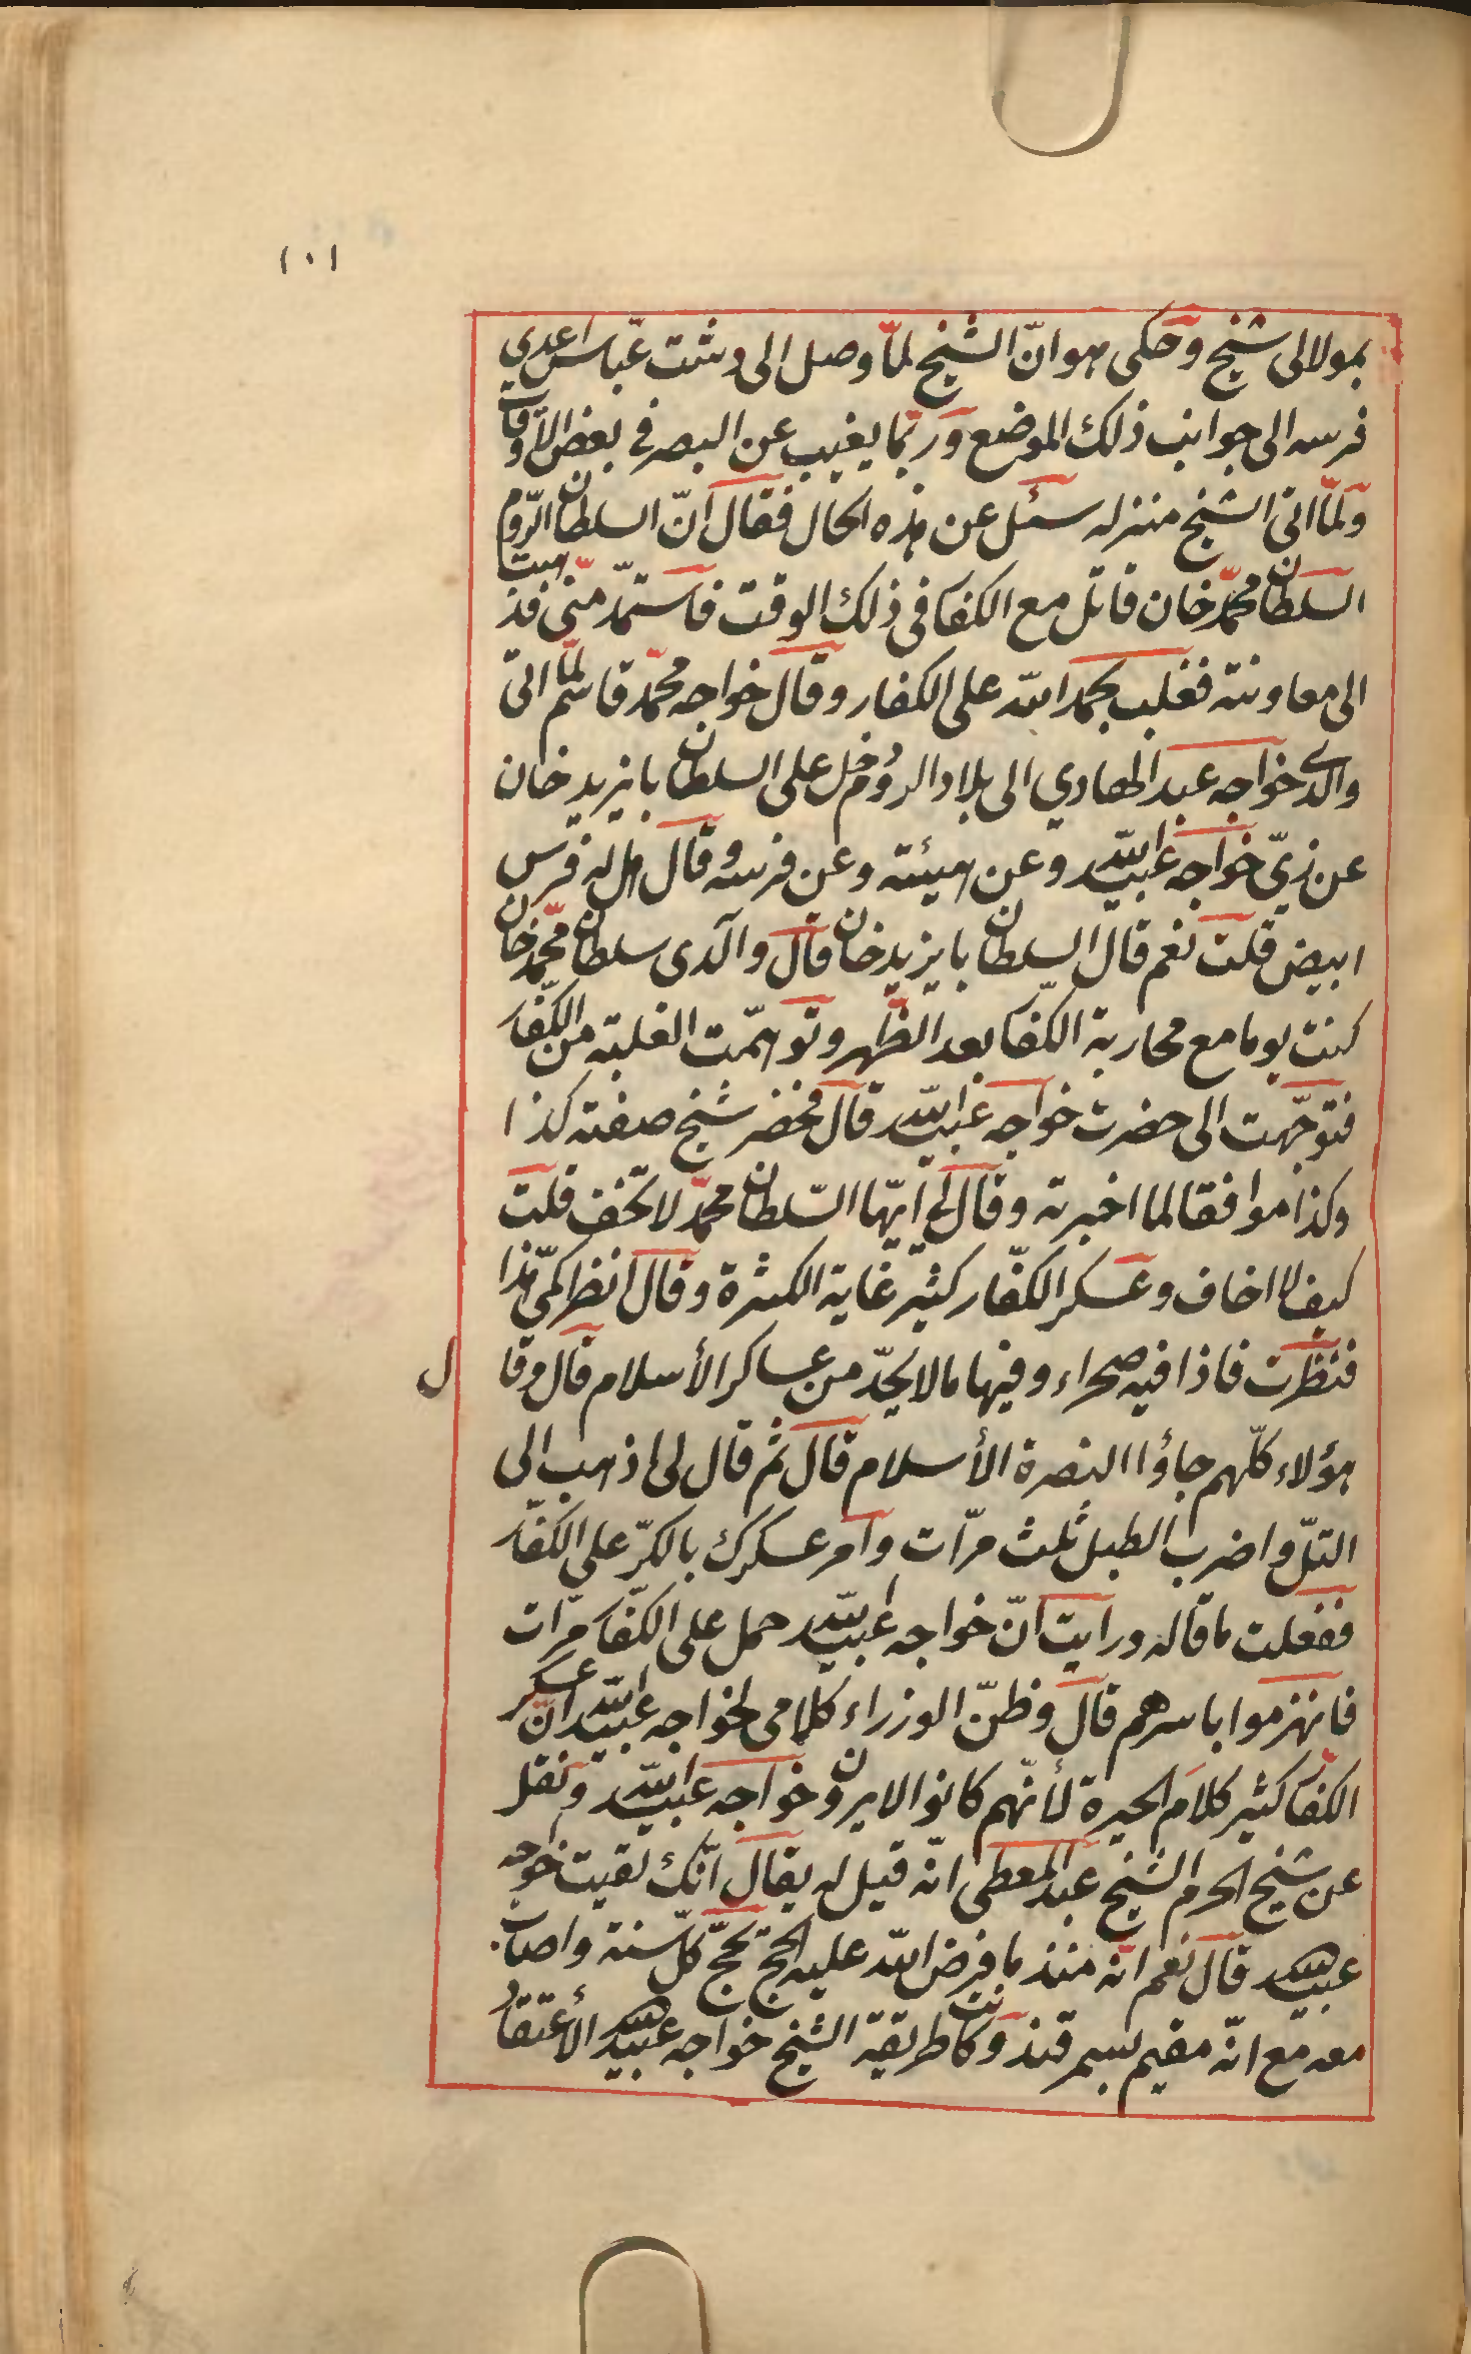 ١٠١
بمولا لى شيخ وحكى هو انّ الشيخ لمّا وصل الى دشت عبّاس اعدى
فرسه الى جوانب ذلك الموضع وربّما يغيب عن البصر فى بعض الاوقات
ولمّا اتى الشيخ منزله سئل عن هذه الحال فقال انّ السلطان الرّوم
السلطان محمّد خان قاتل مع الكفا فى ذلك الوقت فاستمدّ منّى فذهبت
الى معاونته فغلب بحمد الله على الكفار وقال خواجه محمّد قاسم لمّا اتى
والدى خواجه عبد الهادي الى بلاد الروم دخل على السلطان بايزيد خان
عن زيّ خواجه عبيد الله وعن هيئته وعن فرسه وقال هل له فرس
ابيض قلت نعم قال السلطان بايزيد خان قال والدى سلطان محمّد خان
كنت يوما مع محاربة الكفّا بعد الظّهر وتوهّمت الغلبة من الكفّار
فتوجّهت الى حضرت خواجه عبيد الله قال فحضر شيخ صفته كذا
وكذا موافقا لما اخبرته وقال لى ايّها السّلطان محمّد لا تخف قلت
كيف لا اخاف وعسكر الكفّار كثير غاية الكثرة وقال انظر كمّى هذا
فنظرت فاذا فيه صحراء وفيها ما لا يحدّ من عساكر الأسلام قال وقا
ل
هؤلاء كلّهم جاؤا النصرة الأسلام قال ثم قال لى اذهب الى
التلّ واضرب الطبل ثلث مرّات وآمر عسكرك بالكرّ على الكفّار
ففعلت ما قاله ورايت انّ خواجه عبيد الله حمل على الكفّار مرّات
فانهزموا باسرهم قال وظنّ الوزراء كلامى لخواجه عبيد الله انّ عسكر
الكفّا كثير كلام الحيرة لأنّهم كانوا لا يرون خواجه عبيد الله ونقل
عن شيخ الحرم الشيخ عبد المعطى انّه قيل له يقال انّك لقيت خواجه
عبيد الله قال نعم انّه منذ ما فرض الله عليه الحجّ يحجّ كلّ سنة واصاب
معه مع انّه مقيم بسمرقند وكانت طريقة الشيخ خواجه عبيد الله الأعتقاد